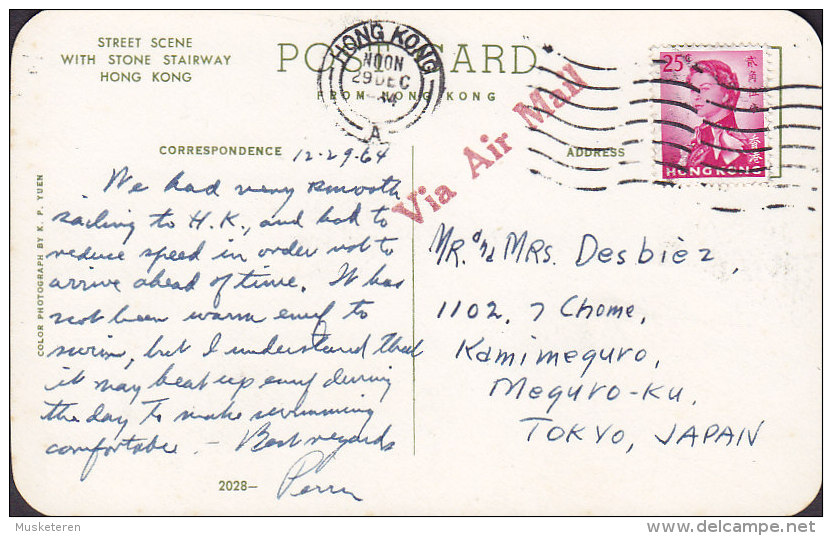 STREET SCENE
WITH STONE STAIRWAY
HONG KONG
POST CARD
FROM HONG KONG
HONG KONG
NOON
29 DEC
64
A
25c
貳角五分
香港
HONG KONG
Via Air Mail
CORRESPONDENCE
ADDRESS
12-29-64
We had very smooth
sailing to H.K., and had to
reduce speed in order not to
arrive ahead of time. It has
not been warm enuf to
swim, but I understand that
it may heat up enuf during
the day to make swimming
comfortable. – Best regards
MR. and MRS. Desbiez,
1102, 7 Chome,
Kamimeguro,
Meguro-ku,
TOKYO, JAPAN
COLOR PHOTOGRAPH BY K. P. YUEN
2028–
Musketeren
delcampe.net